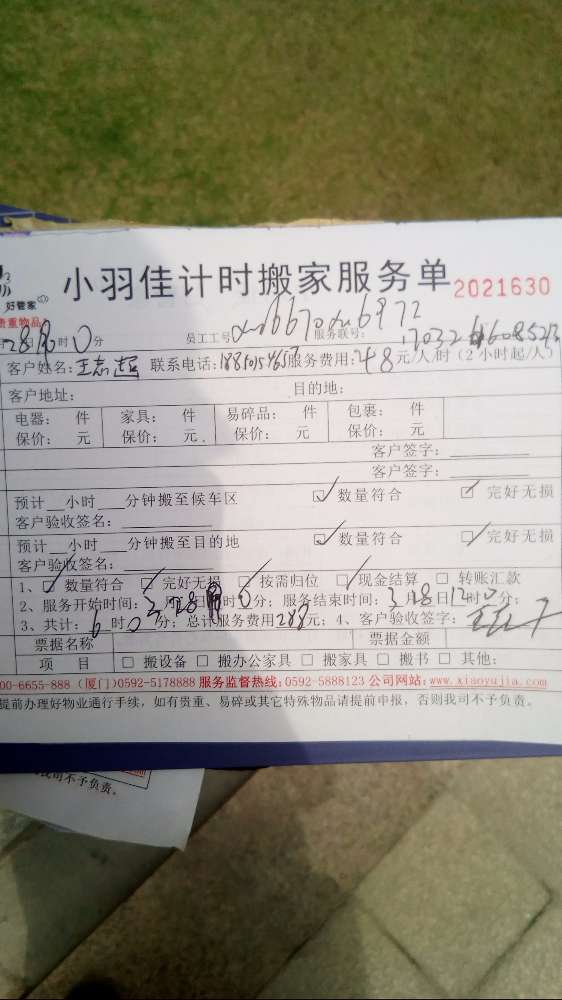 好管家
小羽佳计时搬家服务单 2021630
贵重物品
28 时 0 分 员工工号 服务联号:
客户姓名: 王志超 联系电话: 服务费用: 48 元/人/时(2小时起/人)
客户地址: 目的地:
电器: 件 家具: 件 易碎品: 件 包裹: 件
保价: 元 保价: 元 保价: 元 保价: 元
客户签字:
客户签字:
预计 小时 分钟搬至候车区 ☑ 数量符合 ☑ 完好无损
客户验收签名:
预计 小时 分钟搬至目的地 ☑ 数量符合 ☑ 完好无损
客户验收签名:
1、☑ 数量符合 ☑ 完好无损 ☑ 按需归位 ☑ 现金结算 □ 转账汇款
2、服务开始时间: 3 月 28 日 时 0 分; 服务结束时间: 3 月 28 日 12 时 0 分;
3、共计: 6 时 0 分; 总计服务费用 288 元; 4、客户验收签字:
票据名称 票据金额
项 目 □ 搬设备 □ 搬办公家具 □ 搬家具 □ 搬书 □ 其他:
00-6655-888 (厦门)0592-5178888 服务监督热线:0592-5888123 公司网站:www.xiaoyujia.com
提前办理好物业通行手续,如有贵重、易碎或其它特殊物品请提前申报,否则我司不予负责。
我司不予负责。